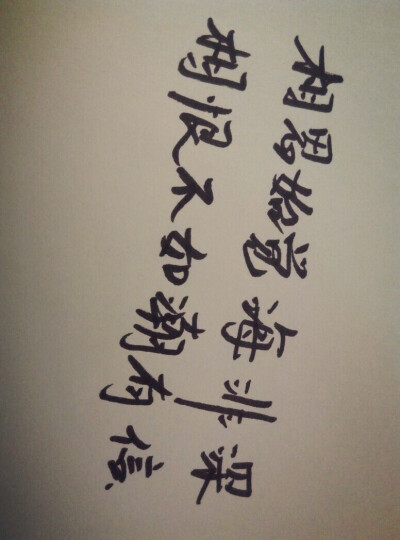 相思始觉海非深
相恨不如潮有信